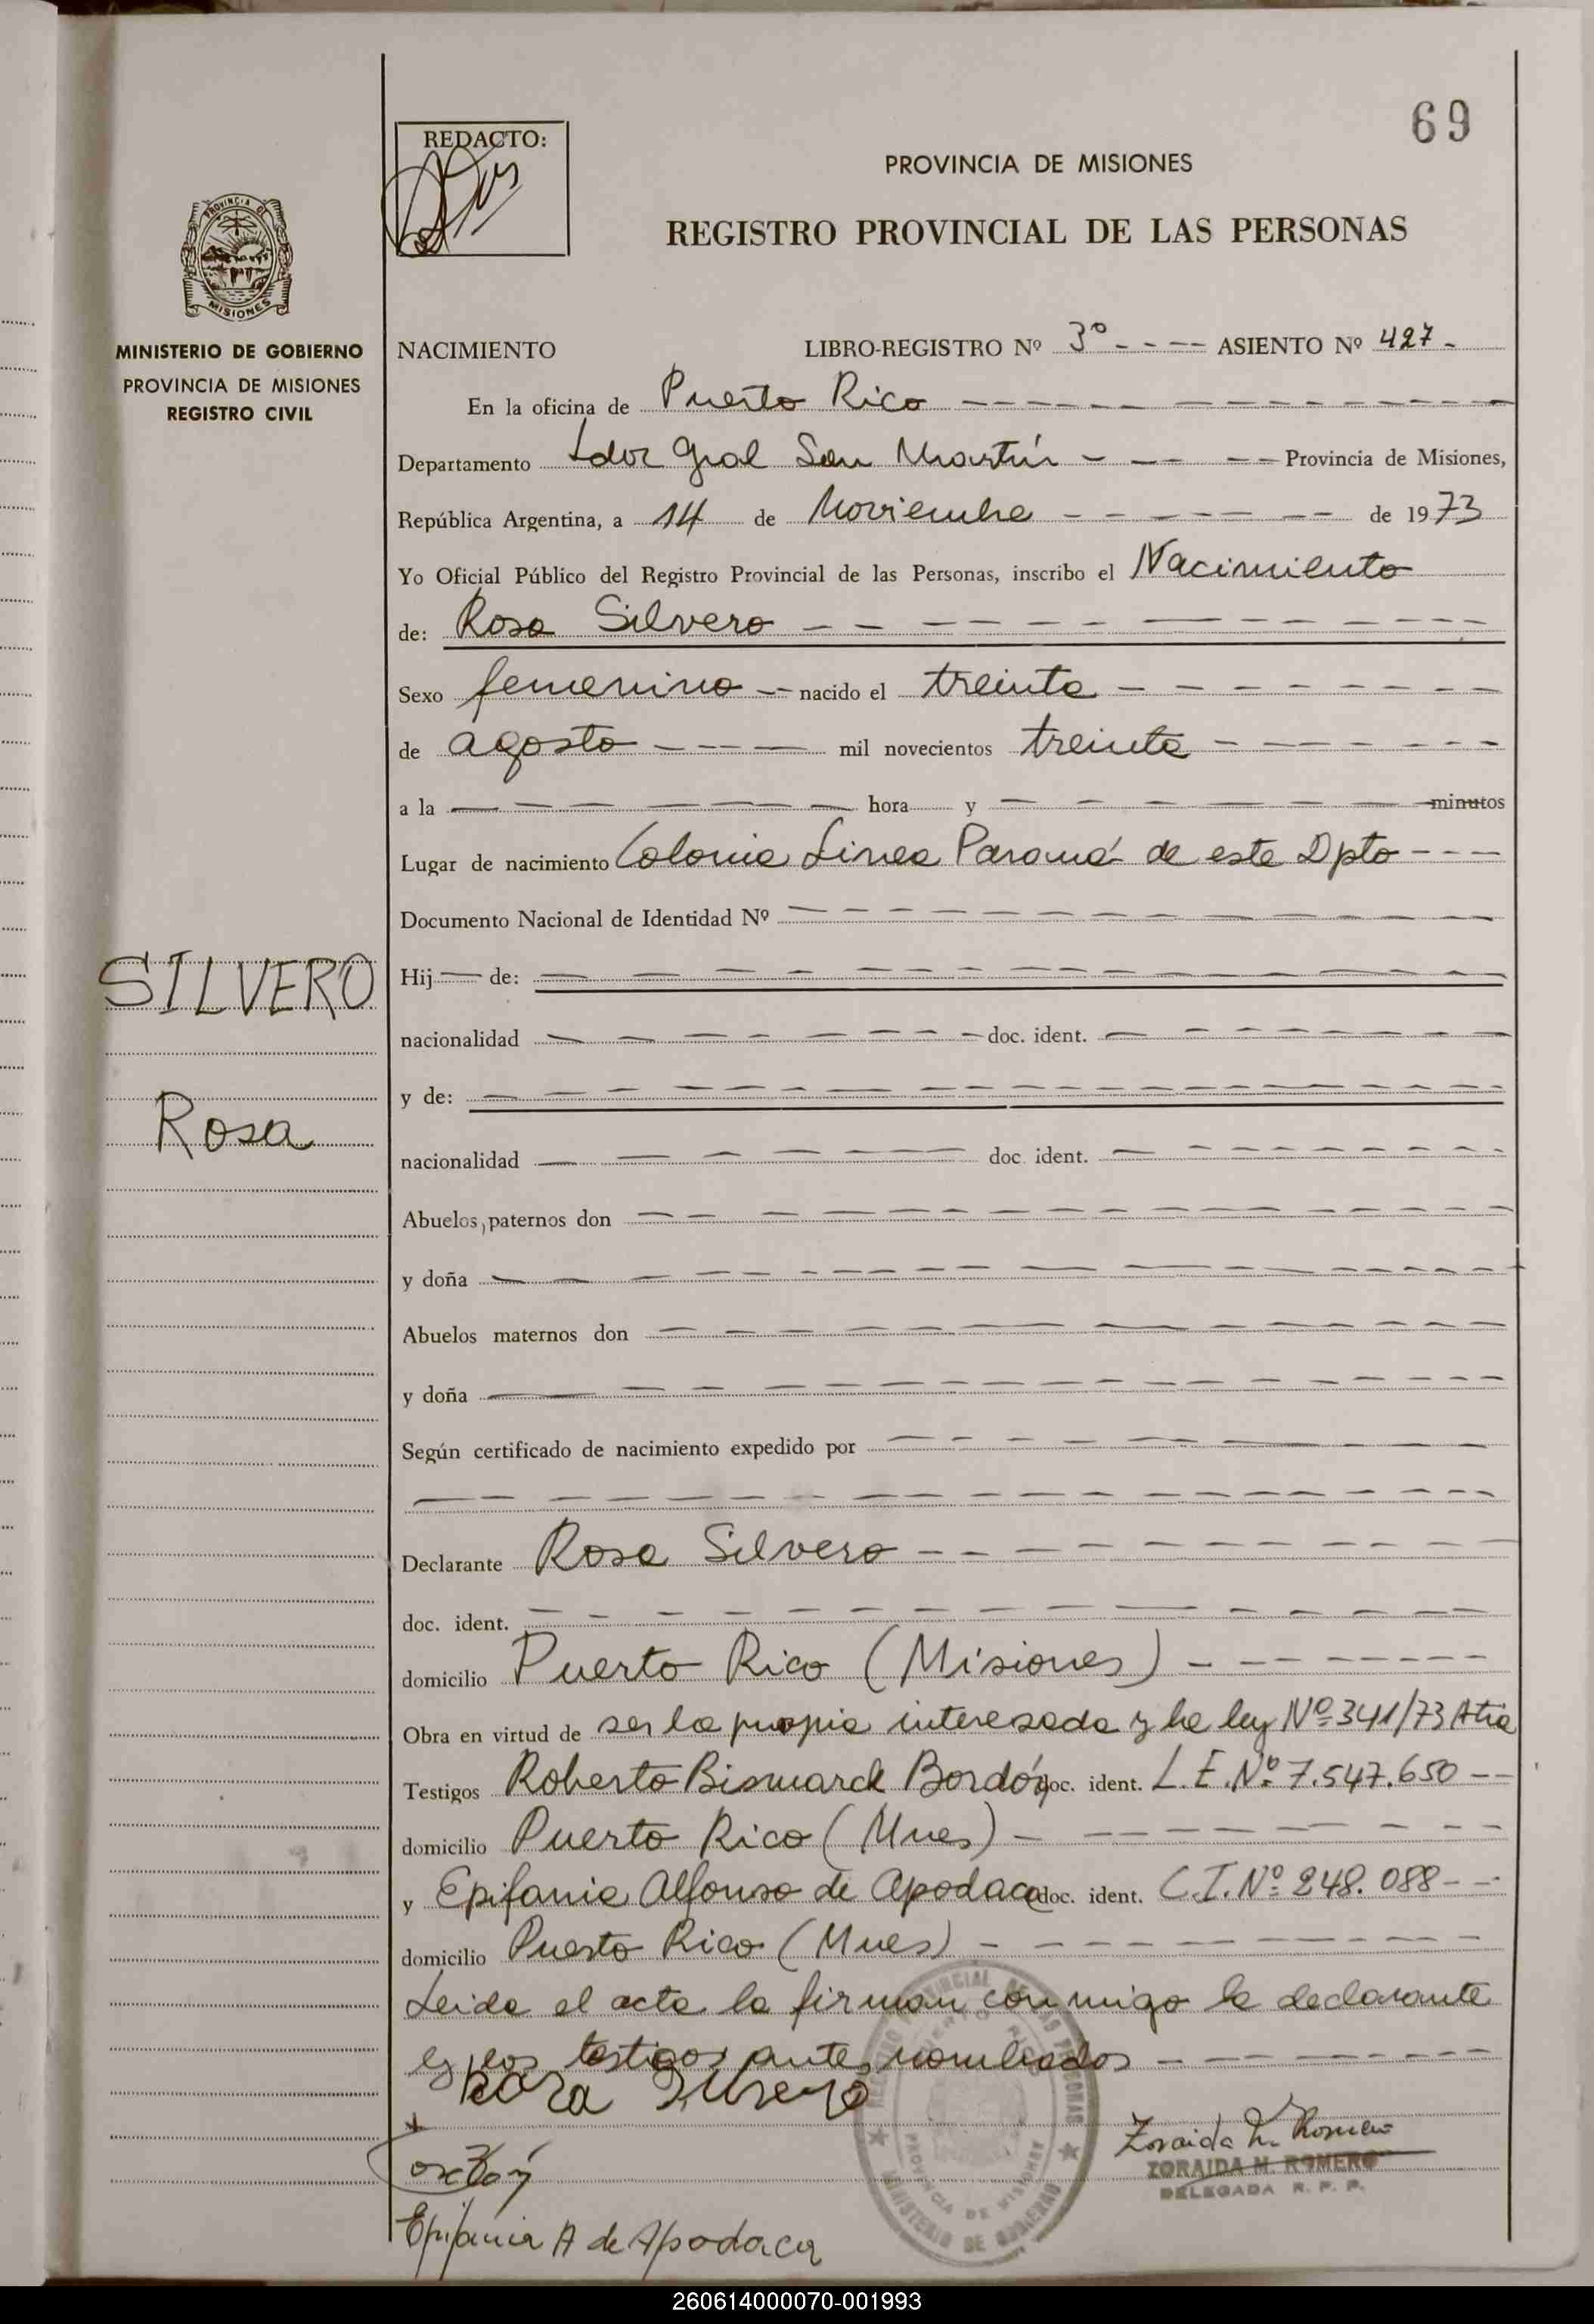 69
REDACTO:
PROVINCIA DE MISIONES
REGISTRO PROVINCIAL DE LAS PERSONAS
PROVINCIA DE
MISIONES
MINISTERIO DE GOBIERNO
PROVINCIA DE MISIONES
REGISTRO CIVIL
NACIMIENTO LIBRO-REGISTRO Nº 3º - - - - ASIENTO Nº 427 -
En la oficina de Puerto Rico
Departamento Ldor Gral San Martín Provincia de Misiones,
República Argentina, a 14 de Noviembre de 1973
Yo Oficial Público del Registro Provincial de las Personas, inscribo el Nacimiento
de: Rosa Silvero
Sexo femenino nacido el treinta
de agosto mil novecientos treinta
a la hora y minutos
Lugar de nacimiento Colonia Linea Paraná de este Dpto
Documento Nacional de Identidad Nº
SILVERO
Rosa
Hij de:
nacionalidad doc. ident.
y de:
nacionalidad doc. ident.
Abuelos paternos don
y doña
Abuelos maternos don
y doña
Según certificado de nacimiento expedido por
Declarante Rosa Silvero
doc. ident.
domicilio Puerto Rico (Misiones)
Obra en virtud de ser la propia interesada y la ley Nº 341/73 Atra
Testigos Roberto Bismarck Bordón doc. ident. L.E. Nº 7.547.650
domicilio Puerto Rico (Mnes)
y Epifania Alfonso de Apodaca doc. ident. C.I. Nº 248.088
domicilio Puerto Rico (Mnes)
Leida el acta la firman conmigo la declarante
y los testigos antes nombrados
Rosa Silvero
Zoraida M. Romero
ZORAIDA M. ROMERO
DELEGADA R. P. P.
Epifania A de Apodaca
REGISTRO PROVINCIAL DE LAS PERSONAS
PUERTO RICO
PROVINCIA DE MISIONES
MINISTERIO DE GOBIERNO
260614000070-001993